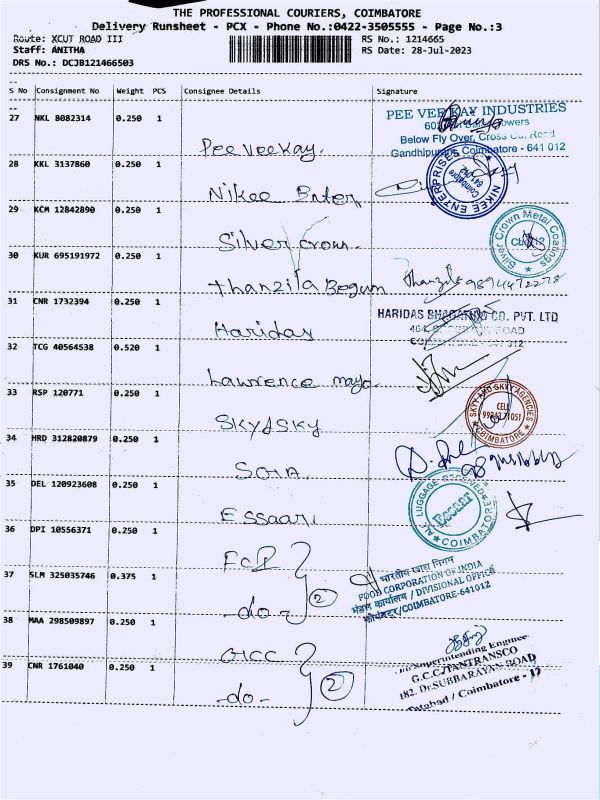 THE PROFESSIONAL COURIERS, COIMBATORE
Delivery Runsheet - PCX - Phone No.:0422-3505555 - Page No.:3
Route: XCUT ROAD III
RS No.: 1214665
Staff: ANITHA
RS Date: 28-Jul-2023
DRS No.: DCJB121466503
S No Consignment No Weight PCS Consignee Details Signature
27 NKL 8082314 0.250 1
Pee Vee Kay.
PEE VEE KAY INDUSTRIES
Below Fly Over, Cross Cut Road
Gandhipuram, Coimbatore - 641 012
28 KKL 3137860 0.250 1
Nikee Enter
NIKEE ENTERPRISES
Coimbatore
641 012
29 KCM 12842890 0.250 1
Silver crown.
Silver Crown Metal Coatings
30 KUR 695191972 0.250 1
Thanzila Begum
31 CNR 1732394 0.250 1
Haridas
HARIDAS BHAGATH CO. PVT. LTD
32 TCG 40564538 0.520 1
Lawrence mayo.
33 RSP 120771 0.250 1
Sky & Sky
SKYI AND SKYI AGENCIES
CELL
COIMBATORE
34 HRD 312820879 0.250 1
35 DEL 120923608 0.250 1
Essaar
ALL LUGGAGE RECEIVED
Essaar
COIMBATORE
36 DPI 10556371 0.250 1
FCI
भारतीय खाद्य निगम
FOOD CORPORATION OF INDIA
मंडल कार्यालय / DIVISIONAL OFFICE
कोयंबटूर/COIMBATORE-641012
37 SLM 325035746 0.375 1
-do-
2
38 MAA 298509897 0.250 1
GCC
Superintending Engineer
G.C.C/TANTRANSCO
182, Dr.SUBBARAYAN ROAD
Tatabad / Coimbatore - 12
39 CNR 1761040 0.250 1
-do-
2